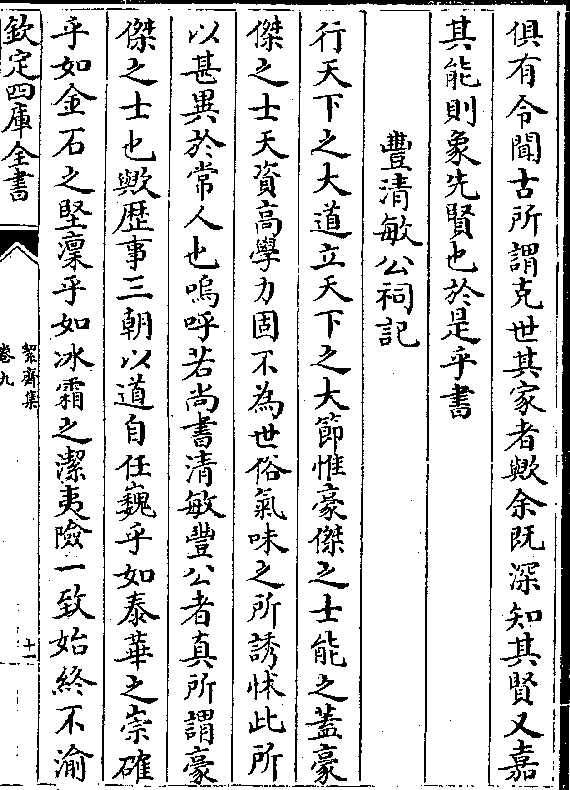 俱有令聞古所謂克世其家者歟余既深知其賢又嘉
其能則象先賢也於是乎書
豐清敏公祠記
行天下之大道立天下之大節惟豪傑之士能之蓋豪
傑之士天資高學力固不為世俗氣味之所誘怵此所
以甚異於常人也嗚呼若尚書清敏豐公者真所謂豪
傑之士也歟歴事三朝以道自任巍乎如泰華之崇確
乎如金石之堅凜乎如冰霜之潔夷險一致始終不渝
欽定四庫全書
絜齋集
卷九
十一